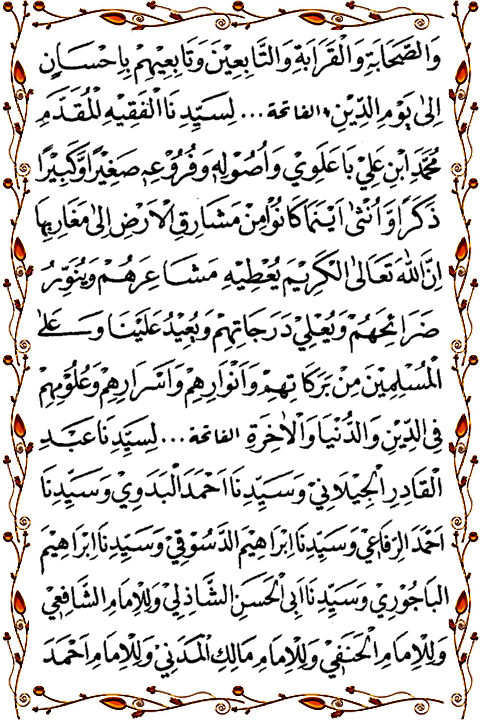 وَالصَّحَابَةِ وَالْقَرَابَةِ وَالتَّابِعِيْنَ وَتَابِعِيْهِمْ بِاِحْسَانٍ
اِلىٰ يَوْمِ الدِّيْنِ * الفاتحة ... لِسَيِّدِنَا الْفَقِيْهِ الْمُقَدَّمِ
مُحَمَّدِ ابْنِ عَلِيْ بَا عَلَوِيْ وَاُصُوْلِهِ وَفُرُوْعِهِ صَغِيْرًا وَّكَبِيْرًا
ذَكَرًا وَّاُنْثىٰ اَيْنَمَا كَانُوْا مِنْ مَشَارِقِ الْاَرْضِ اِلىٰ مَغَارِبِهَا
اِنَّ اللهَ تَعَالىٰ الْكَرِيْمَ يُعْطِيْهِ مَشَاعِرَهُمْ وَيُنَوِّرُ
ضَرَائِحَهُمْ وَيُعْلِيْ دَرَجَاتِهِمْ وَيُعِيْدُ عَلَيْنَا وَعَلىٰ
الْمُسْلِمِيْنَ مِنْ بَرَكَاتِهِمْ وَاَنْوَارِهِمْ وَاَسْرَارِهِمْ وَعُلُوْمِهِمْ
فِى الدِّيْنِ وَالدُّنْيَا وَالْاٰخِرَةِ الفاتحة ... لِسَيِّدِنَا عَبْدِ
الْقَادِرِ الْجِيْلَانِيْ وَسَيِّدِنَا اَحْمَدَ الْبَدَوِيْ وَسَيِّدِنَا
اَحْمَدَ الرِّفَاعِيْ وَسَيِّدِنَا اِبْرَاهِيْمَ الدَّسُوْقِيْ وَسَيِّدِنَا اِبْرَاهِيْمَ
الْبَاجُوْرِيْ وَسَيِّدِنَا اَبِى الْحَسَنِ الشَّاذِلِيْ وَلِلْاِمَامِ الشَّافِعِيْ
وَلِلْاِمَامِ الْحَنَفِيْ وَلِلْاِمَامِ مَالِكِ الْمَدَنِيْ وَلِلْاِمَامِ اَحْمَدَ